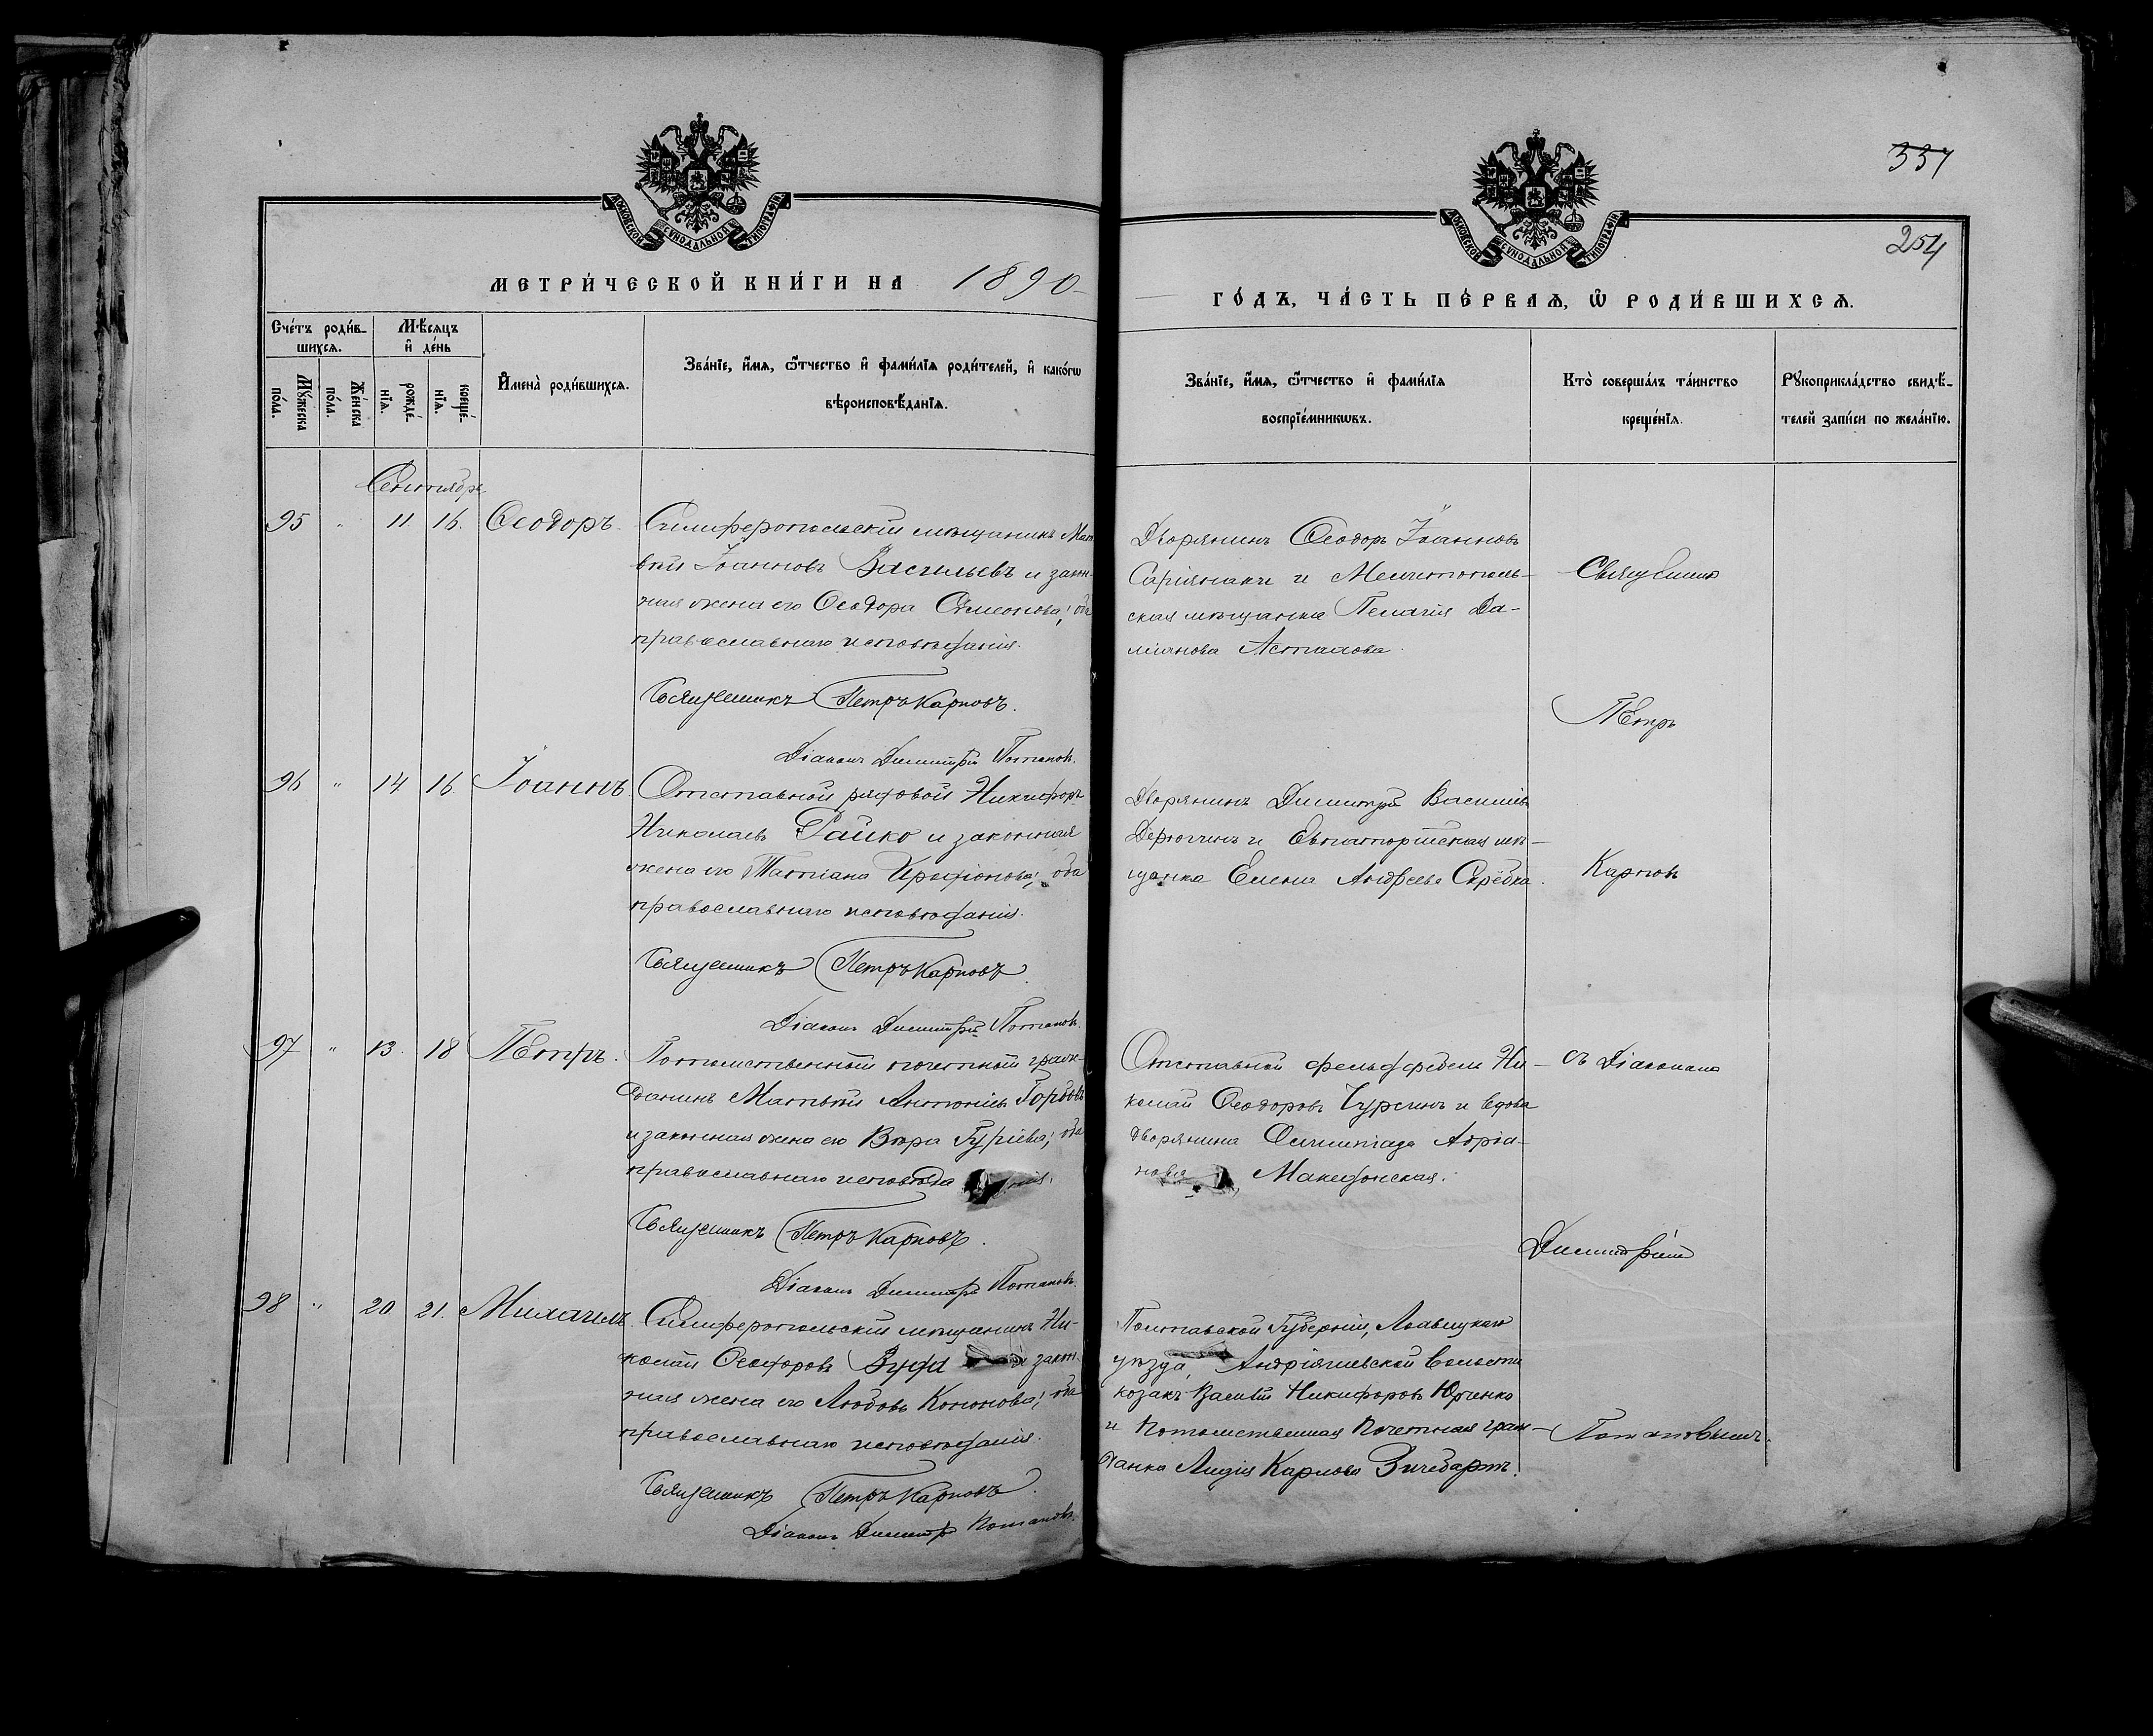 337
254
МОСКОВСКОЙ СѴНОДАЛЬНОЙ ТИПОГРАФІИ
МОСКОВСКОЙ СѴНОДАЛЬНОЙ ТИПОГРАФІИ
МЕТРИ́ЧЕСКОЙ КНИ́ГИ НА 1890
ГО́ДЪ, ЧА́СТЬ ПЕ́РВАѦ, Ѿ РОДИ́ВШИХСѦ.
Сче́тъ роди́в-
шихсѧ.
Мꙋ́жеска
по́ла.
Же́нска
по́ла.
Мѣ́сяцъ
и҆ де́нь
рожде́-
нїѧ.
креще́-
нїѧ.
И҆мена̀ роди́вшихсѧ.
Зва́нїе, и҆́мѧ, ѻ҆́тчество и҆ фами́лїѧ роди́телей, и҆ како́гѡ
вѣроисповѣ́данїѧ.
Зва́нїе, и҆́мѧ, ѻ҆́тчество и҆ фами́лїѧ
воспрїе́мникѡвъ.
Кто̀ соверша́лъ та́инство
креще́нїѧ.
Рꙋкоприкла́дство свидѣ́-
телей за́писи по жела́нїю.
Сентябрь
95 " 11. 16. Ѳеодоръ.
Симферопольскій мѣщанинъ Мат
вѣй Іоанновъ Васильевъ и закон-
ная жена его Ѳеодора Симеонова; оба
православнаго исповѣданія.
Священникъ Петръ Карповъ.
Діаконъ Димитрій Потаповъ.
Дворянинъ Ѳеодоръ Іоанновъ
и Мелитополь-
ская мѣщанка Пелагія Да-
міанова
Священник
Петръ
96 " 14 16. Іоаннъ
Отставной рядовой Никифоръ
Николаевъ и законная
жена его Татіана оба
православнаго исповѣданія.
Священникъ Петръ Карповъ.
Діаконъ Димитрій Потаповъ.
Дворянинъ Димитрій Василіевъ
Дерюгинъ и Евпаторійская мѣ-
щанка Елена Андреева
Карповъ
97 " 13. 18 Петръ.
Потомственный почетный граж-
данинъ Матвѣй Антоніевъ Горбовъ
и законная жена его Вѣра Гуріева; оба
православнаго исповѣда нія.
Священникъ Петръ Карповъ.
Діаконъ Димитрій Потаповъ.
Отставной фельдфебель Ни-
колай Ѳеодоровъ Чурсинъ и вдова
дворянина Олимпіада Адріа-
нова Македонская.
съ Діакономъ
Димитріемъ
98 " 20 21. Михаилъ.
Симферопольскій мѣщанинъ Ни-
колай Ѳеодоровъ и закон-
ная жена его Любовь Кононова; оба
православнаго исповѣданія.
Священникъ Петръ Карповъ.
Діаконъ Димитрій Потаповъ.
Полтавской Губерніи,
уѣзда, волости
козакъ Василій Никифоровъ Юрченко
и Потомственная Почетная граж-
данка Лидія Карлова
Потаповымъ.